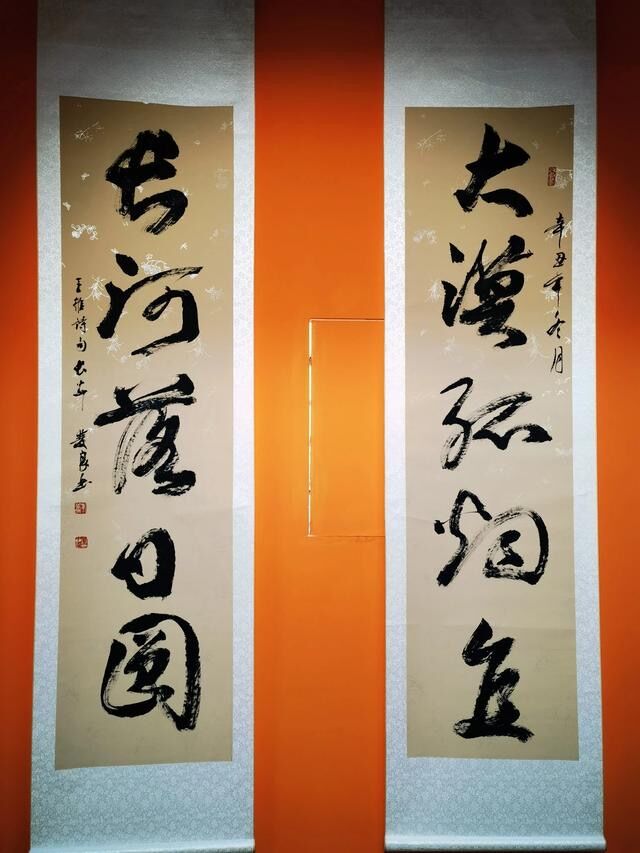 大漠孤烟直
辛丑年冬月
长河落日圆
王维诗句 长安